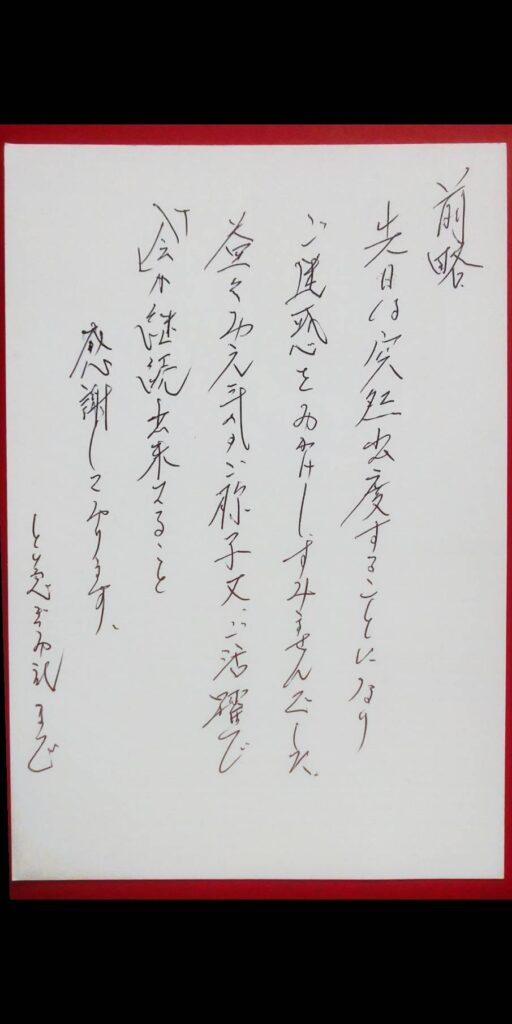 前略
先日は突然出度することになり
ご迷惑をおかけしすみませんでした、
益々お元気なご様子又ご活躍で
会が継続出来ること
感謝しております、
とり急ぎお礼まで